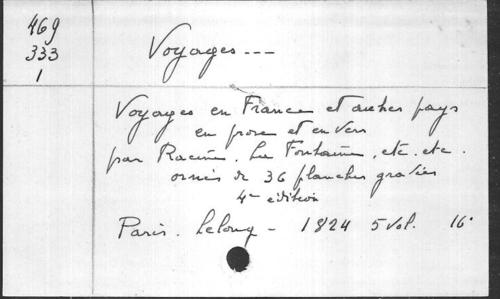 469
333
1
Voyages ---
Voyages en France et autres pays
en prose et en vers
par Racine, La Fontaine, etc. etc.
ornés de 36 planches gravées
4me édition
Paris. Lelong - 1824 5 vol. 16°